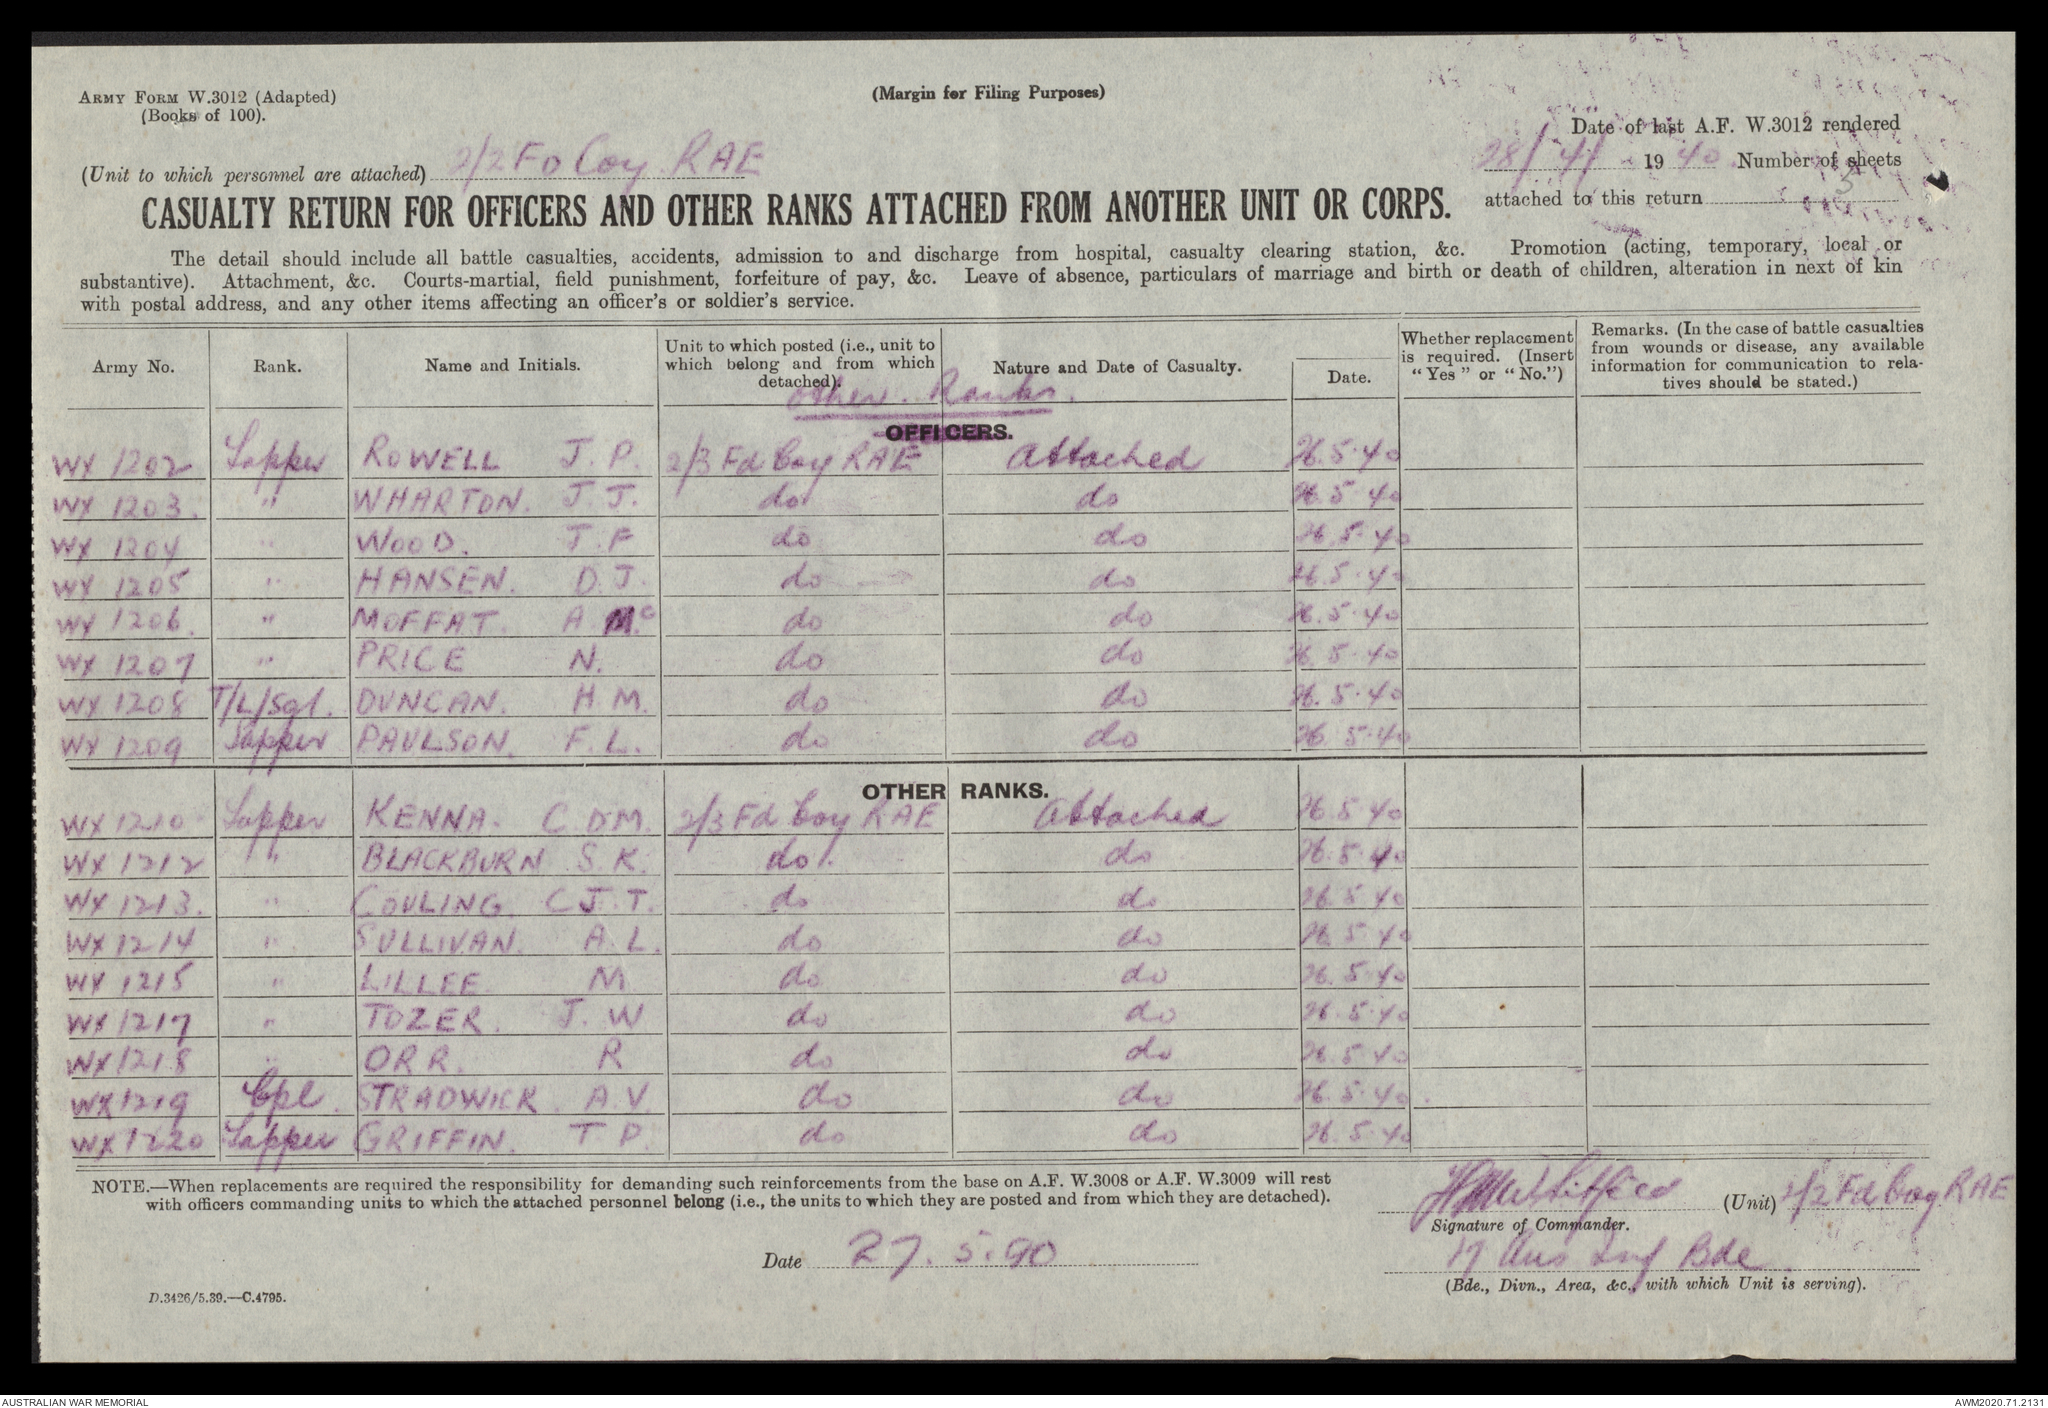 (Margin for Filing Purposes)
ARMY FORM W.3012 (Adapted)
(Books of 100).
Date of last A.F. W.3012 rendered
28/4/ 1940. Number of sheets
attached to this return 5
(Unit to which personnel are attached) 2/2 Fd Coy RAE
CASUALTY RETURN FOR OFFICERS AND OTHER RANKS ATTACHED FROM ANOTHER UNIT OR CORPS.
The detail should include all battle casualties, accidents, admission to and discharge from hospital, casualty clearing station, &c. Promotion (acting, temporary, local or
substantive). Attachment, &c. Courts-martial, field punishment, forfeiture of pay, &c. Leave of absence, particulars of marriage and birth or death of children, alteration in next of kin
with postal address, and any other items affecting an officer's or soldier's service.
Army No. Rank. Name and Initials. Unit to which posted (i.e., unit to which belong and from which detached). Nature and Date of Casualty. Date. Whether replacement is required. (Insert "Yes" or "No.") Remarks. (In the case of battle casualties from wounds or disease, any available information for communication to relatives should be stated.)
Other Ranks.
OFFICERS.
WX 1202 Sapper ROWELL J. P. 2/3 Fd Coy RAE Attached 26.5.40
WX 1203. " WHARTON. J. J. do do 26.5.40
WX 1204 " WOOD. J. F do do 26.5.40
WX 1205 " HANSEN. D. J. do do 26.5.40
WX 1206. " MOFFAT. A. Mc do do 26.5.40
WX 1207 " PRICE N. do do 26.5.40
WX 1208 T/L/Sgt. DUNCAN. H M. do do 26.5.40
WX 1209 Sapper PAULSON. F. L. do do 26.5.40
OTHER RANKS.
WX 1210 Sapper KENNA. C. DM. 2/3 Fd Coy RAE Attached 26.5.40
WX 1212 " BLACKBURN S. K. do. do 26.5.40
WX 1213. " COULING. C J. T. do do 26.5.40
WX 1214 " SULLIVAN. A. L. do do 26.5.40
WX 1215 " LILLEE M do do 26.5.40
WX 1217 " TOZER. J. W do do 26.5.40
WX 1218 " ORR. R do do 26.5.40
WX 1219 Cpl. STRADWICK. A. V. do do 26.5.40.
WX 1220 Sapper GRIFFIN. T P. do do 26.5.40
NOTE.—When replacements are required the responsibility for demanding such reinforcements from the base on A.F. W.3008 or A.F. W.3009 will rest
with officers commanding units to which the attached personnel belong (i.e., the units to which they are posted and from which they are detached).
(Unit) 2/2 Fd Coy RAE
Signature of Commander.
Date 27.5.40
17 Aus Inf Bde.
(Bde., Divn., Area, &c., with which Unit is serving).
D.3426/5.39.—C.4795.
AUSTRALIAN WAR MEMORIAL
AWM2020.71.2131